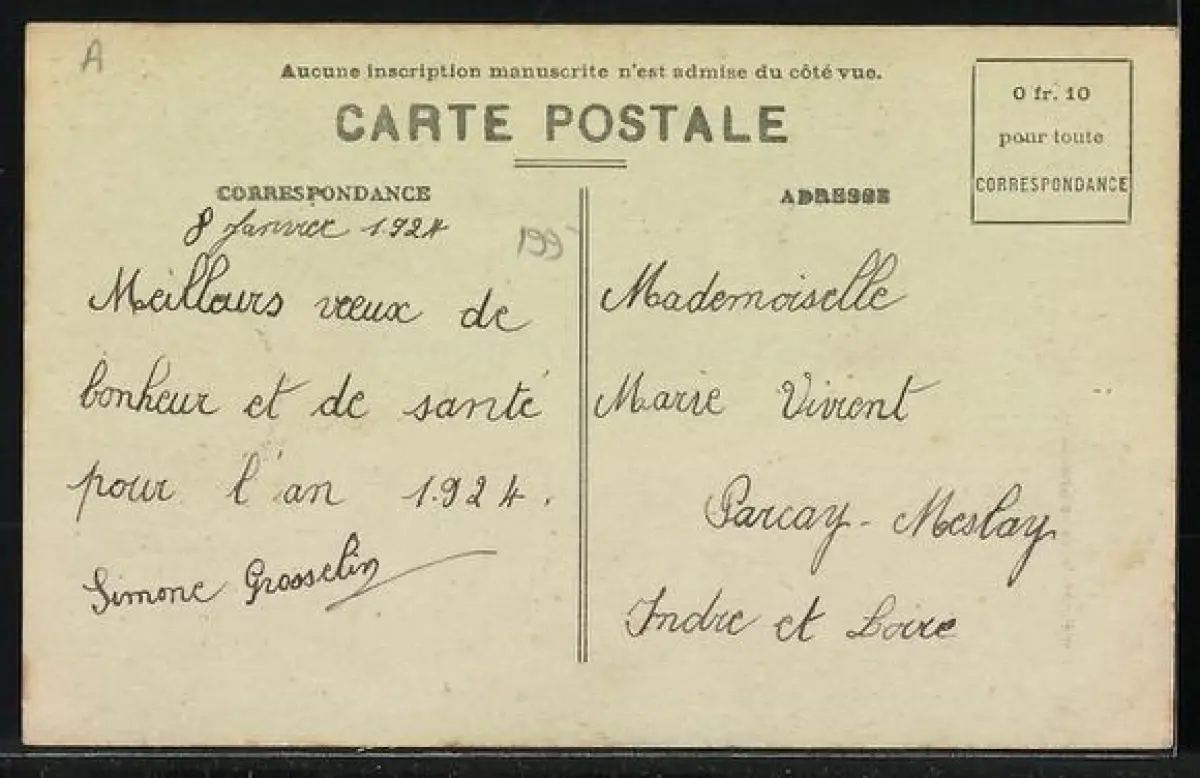 A
Aucune inscription manuscrite n'est admise du côté vue.
CARTE POSTALE
0 fr. 10
pour toute
CORRESPONDANCE
CORRESPONDANCE
8 Janvier 1924
Meilleurs vœux de
bonheur et de santé
pour l'an 1924.
Simone Grosselin
199
ADRESSE
Mademoiselle
Marie Vivient
Parcay-Meslay
Indre et Loire